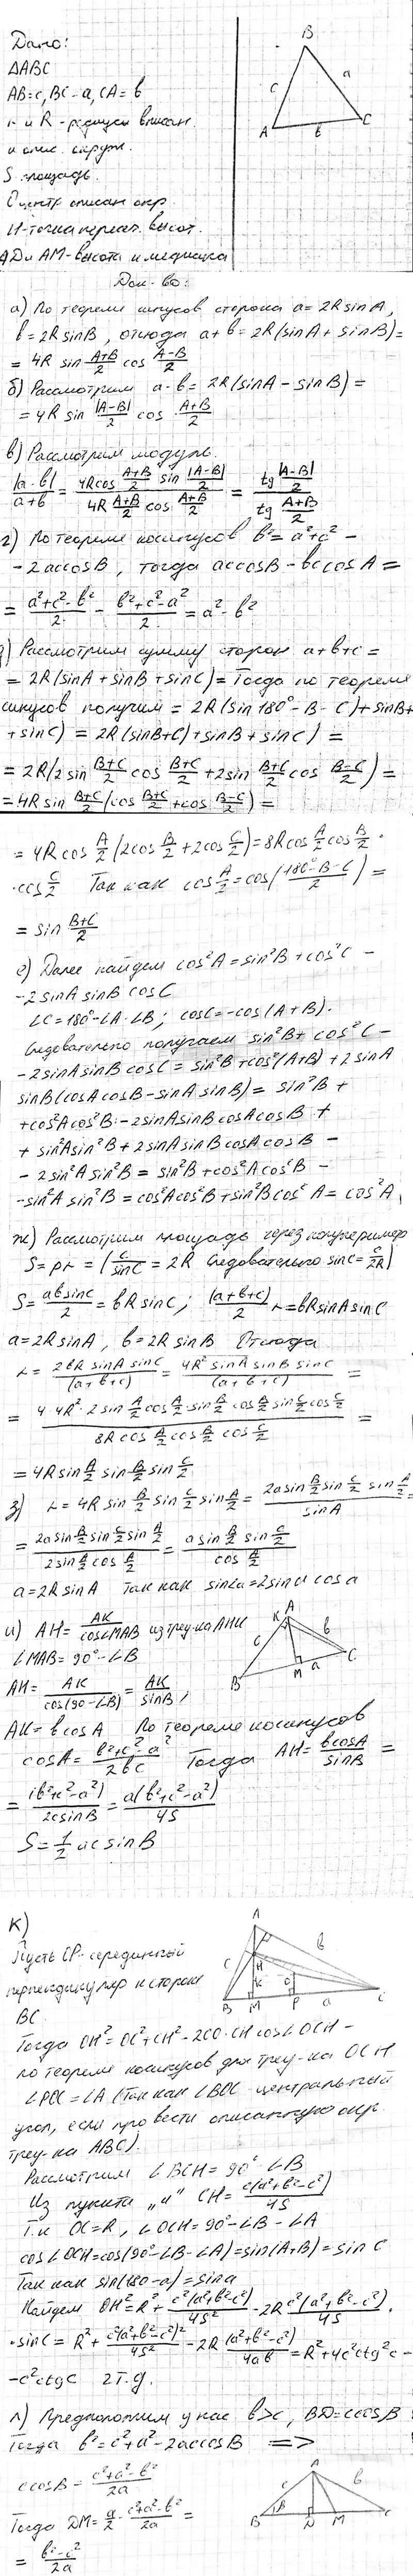 Дано:
ΔABC
AB=c, BC-a, CA=b
r и R - радиусы вписан.
и опис. окруж.
S площадь.
O центр описан окр.
H-точка перес. высот.
AD и AM-высота и медиана
B
c
a
A
b
C
Док-во:
а) По теореме синусов сторона a=2R sinA,
b=2R sinB, откуда a+b=2R(sinA+sinB)=
=4R sin (A+B)/2 cos (A-B)/2
б) Рассмотрим a-b=2R(sinA-sinB)=
=4R sin |A-B|/2 cos (A+B)/2
в) Рассмотрим модуль.
|a-b|/(a+b) = (4R cos (A+B)/2 sin |A-B|/2)/(4R (A+B)/2 cos (A+B)/2) = (tg |A-B|/2)/(tg (A+B)/2)
г) По теореме косинусов b²=a²+c²-
-2accosB, тогда accosB-bccosA=
= (a²+c²-b²)/2 - (b²+c²-a²)/2 = a²-b²
д) Рассмотрим сумму сторон a+b+c=
=2R(sinA+sinB+sinC)= Тогда по теореме
синусов получим =2R(sin180°-B-C)+sinB+
+sinC)=2R(sinB+C)+sinB+sinC)=
=2R(2sin (B+C)/2 cos (B+C)/2 +2sin (B+C)/2 cos (B-C)/2)=
=4R sin (B+C)/2 (cos (B+C)/2 +cos (B-C)/2)=
=4R cos A/2 (2cos B/2 +2cos C/2)=8R cos A/2 cos B/2 ·
·cos C/2 Так как cos A/2=cos(180°-B-C)/2)=
=sin (B+C)/2
е) Далее найдем cos²A=sin²B+cos²C-
-2sinA sinB cosC
∠C=180°-∠A-∠B; cosC=-cos(A+B).
Следовательно получаем sin²B+cos²C-
-2sinAsinBcosC=sin²B+cos²(A+B)+2sinA
sinB(cosAcosB-sinAsinB)=sin²B+
+cos²Acos²B-2sinAsinBcosAcosB+
+sin²Asin²B+2sinAsinBcosAcosB-
-2sin²Asin²B=sin²B+cos²Acos²B-
-sin²Asin²B=cos²Acos²B+sin²Bcos²A=cos²A
ж) Рассмотрим площадь через полупериметр
S=pr=(c/sinC=2R Следовательно sinC=c/2R)
S=absinC/2=bR sinC; (a+b+c)/2 r=bR sinA sinC
a=2R sinA, b=2R sinB Откуда
r= 2bR sinA sinC/(a+b+c) = 4R² sinA sinB sinC/(a+b+c) =
= (4·4R²·2sin A/2 cos A/2 ·sin B/2 cos B/2 sin C/2 cos C/2)/(8R cos A/2 cos B/2 cos C/2) =
=4R sin A/2 sin B/2 sin C/2
з) r=4R sin B/2 sin C/2 sin A/2 = (2a sin B/2 sin C/2 sin A/2)/sinA =
= (2a sin B/2 sin C/2 sin A/2)/(2sin A/2 cos A/2) = (a sin B/2 sin C/2)/(cos A/2)
a=2R sinA Так как sin2a=2sina cosa
и) AH= AK/cos∠MAB из треу-ка AHK
∠MAB=90°-∠B
AH= AK/cos(90-∠B) = AK/sinB,
A
K
c
b
B
M
a
C
AK=bcosA По теореме косинусов
cosA= (b²+c²-a²)/2bc Тогда AH= bcosA/sinB =
= (b²+c²-a²)/2csinB = a(b²+c²-a²)/4S
S=1/2 acsinB
к)
Пусть CP-серединный
перпендикуляр к стороне
BC.
A
c
b
H
K
O
B
M
P
a
C
Тогда OH²=OC²+CH²-2CO·CHcos∠OCH-
по теореме косинусов для треу-ка OCH
∠POC=∠A (Так как ∠BOC-центральный
угол, если провести описанную окр.
треу-ка ABC).
Рассмотрим ∠BCH=90°-∠B
Из пункта "и" CH= c(a²+b²-c²)/4S
Т.к OC=R, ∠OCH=90°-∠B-∠A
cos∠OCH=cos(90°-∠B-∠A)=sin(A+B)=sin C
Так как sin(180-a)=sina
Найдем OH²=R²+ c²(a²+b²-c²)/4S² -2R c²(a²+b²-c²)/4S ·
·sinC=R²+ c²(a²+b²-c²)²/4S² -2R (a²+b²-c²)/4ab =R²+4c²ctg²c-
-c²ctgC
л) Предположим у нас b>c, BD=ccosB
Тогда b²=c²+a²-2accosB =>
ccosB= (c²+a²-b²)/2a
Тогда DM= a/2 - (c²+a²-b²)/2a =
= (b²-c²)/2a
A
c
b
B
B
D
M
C